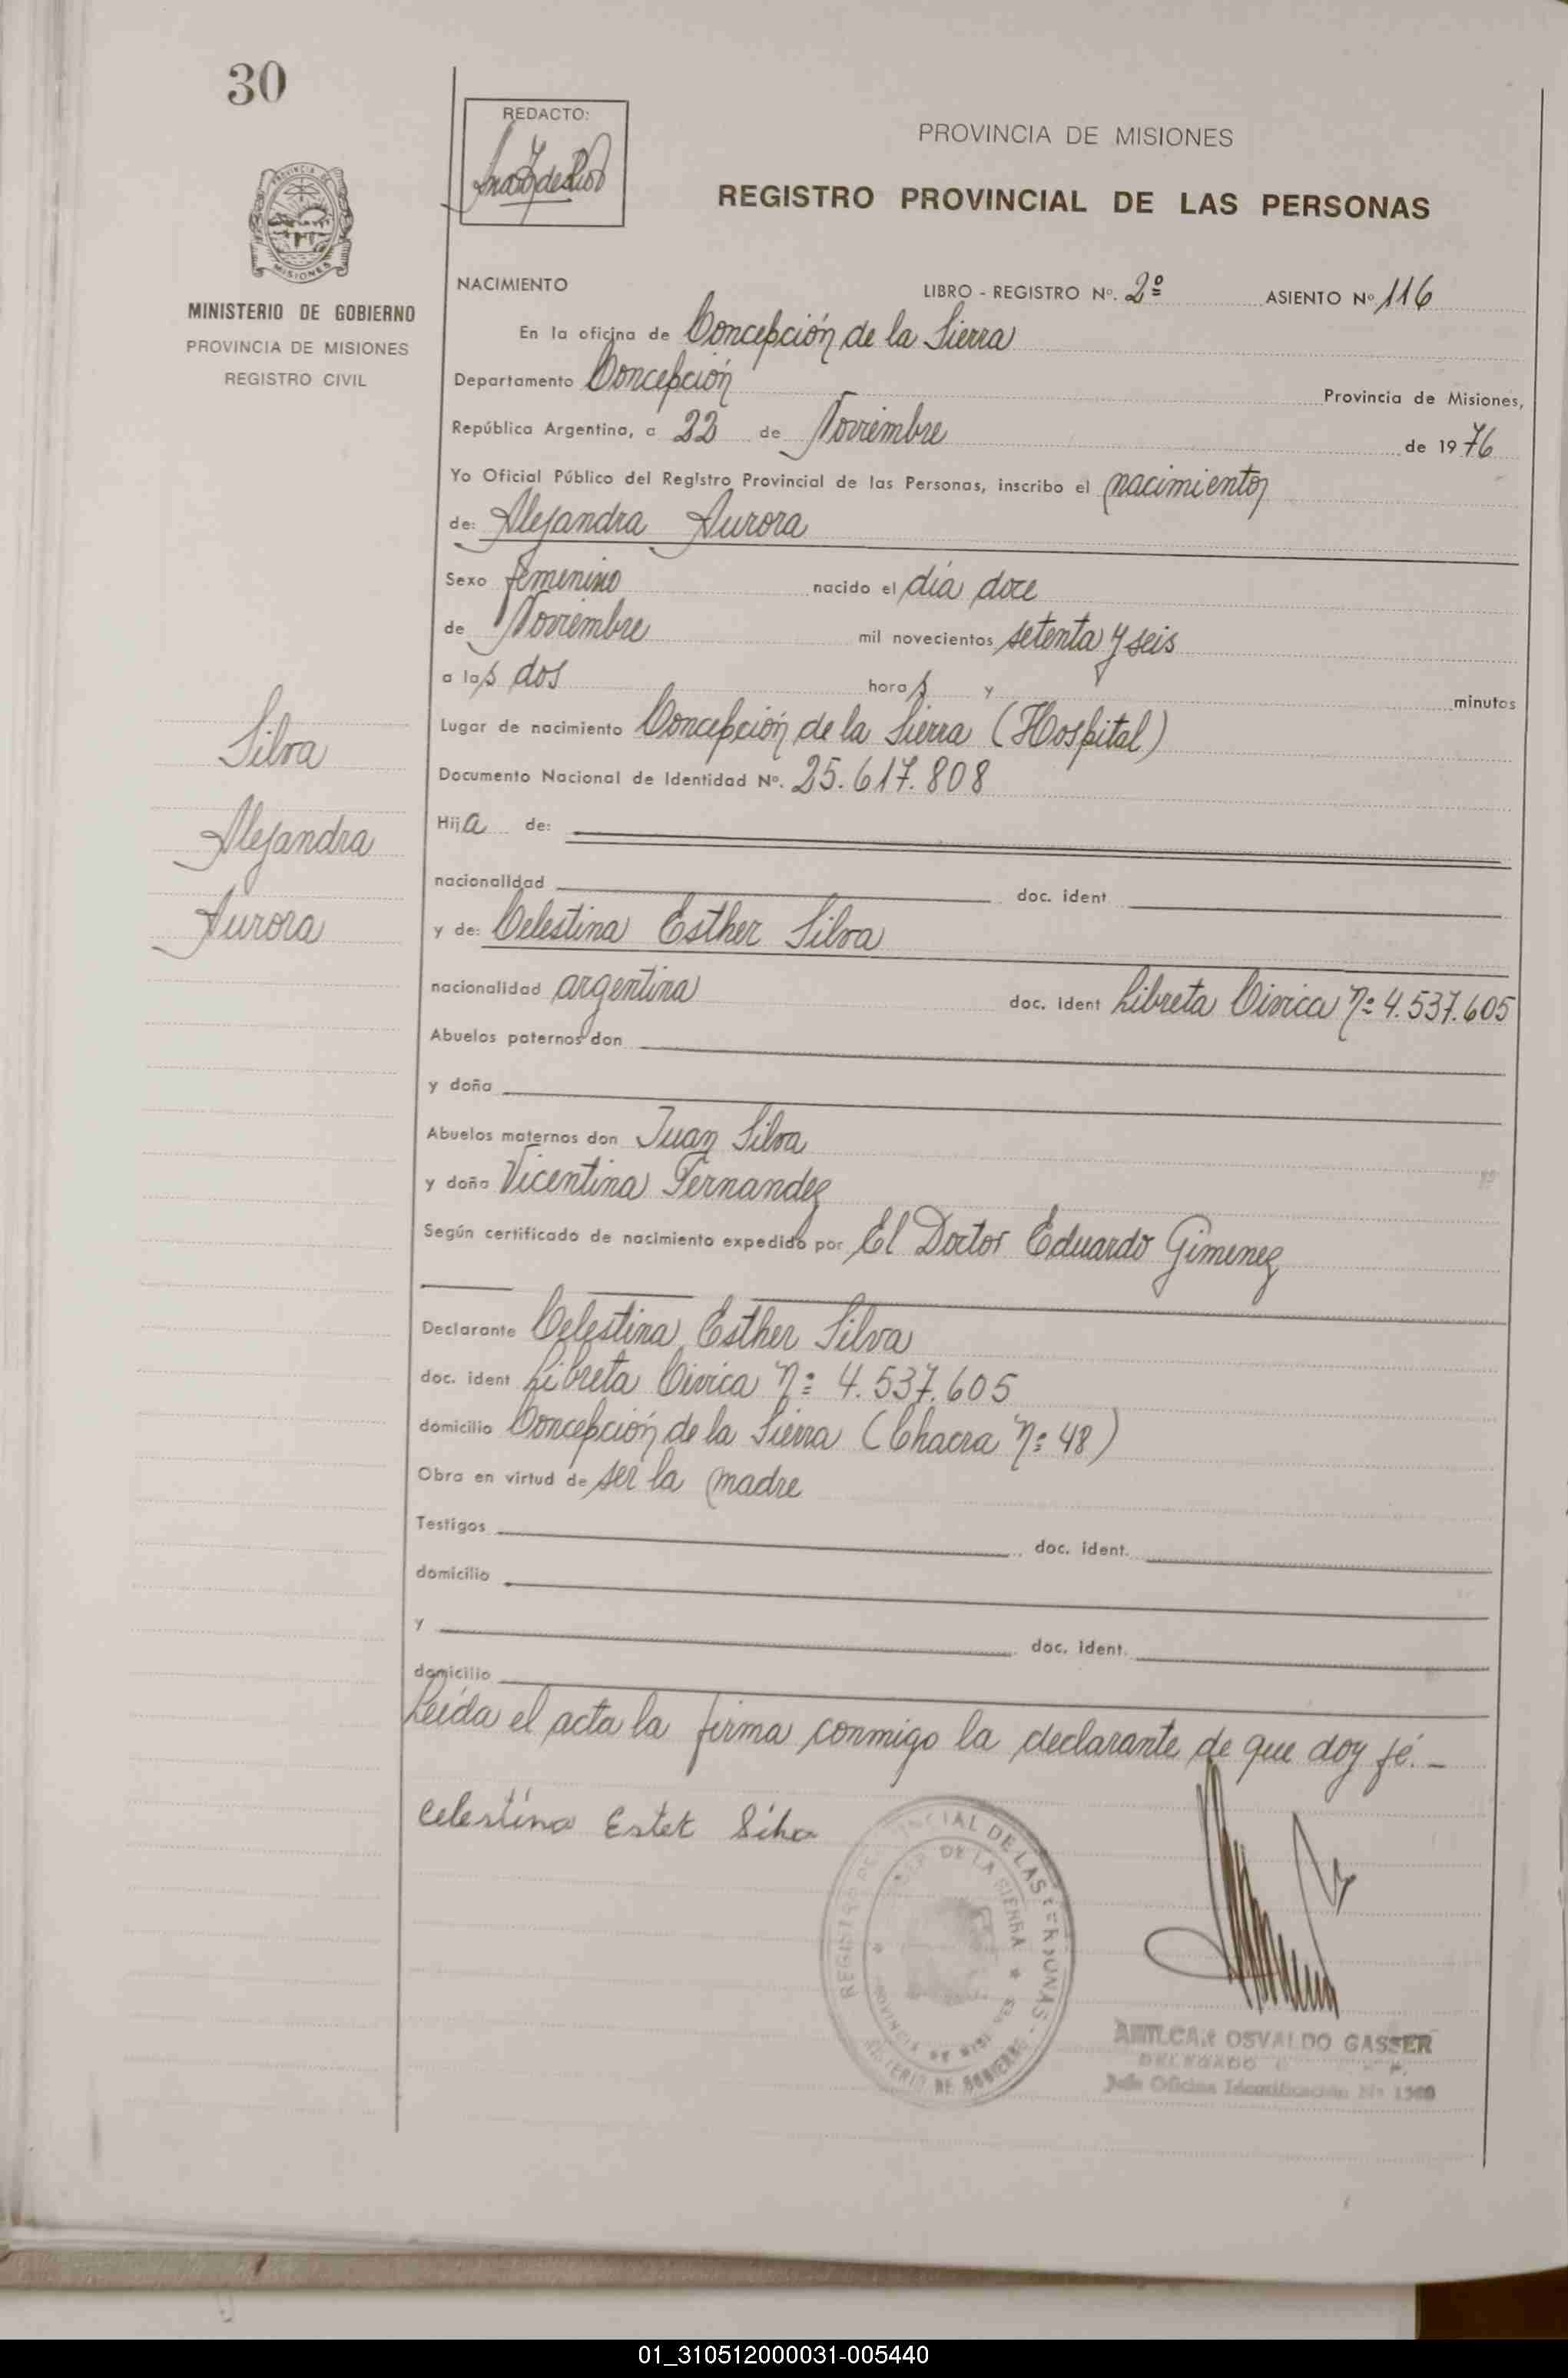 30
REDACTO:
PROVINCIA DE MISIONES
REGISTRO PROVINCIAL DE LAS PERSONAS
MISIONES
MINISTERIO DE GOBIERNO
PROVINCIA DE MISIONES
REGISTRO CIVIL
NACIMIENTO LIBRO - REGISTRO Nº. 2º ASIENTO Nº 116
En la oficina de Concepción de la Sierra
Departamento Concepción Provincia de Misiones,
República Argentina, a 22 de Noviembre de 1976
Yo Oficial Público del Registro Provincial de las Personas, inscribo el nacimiento
de: Alejandra Aurora
Sexo femenino nacido el día doce
de Noviembre mil novecientos setenta y seis
a las dos horas y minutos
Lugar de nacimiento Concepción de la Sierra (Hospital)
Documento Nacional de Identidad Nº. 25.617.808
Hija de:
nacionalidad doc. ident
y de: Celestina Esther Silva
nacionalidad argentina doc. ident Libreta Civica Nº 4.537.605
Abuelos paternos don
y doña
Abuelos maternos don Juan Silva
y doña Vicentina Fernandez
Según certificado de nacimiento expedido por El Doctor Eduardo Gimenez
Declarante Celestina Esther Silva
doc. ident Libreta Civica Nº 4.537.605
domicilio Concepción de la Sierra (Chacra Nº 48)
Obra en virtud de ser la madre
Testigos doc. ident.
domicilio
y doc. ident.
domicilio
Leída el acta la firma conmigo la declarante de que doy fé. -
Silva
Alejandra
Aurora
Celestina Ester Silva
REGISTRO PROVINCIAL DE LAS PERSONAS - MINISTERIO DE GOBIERNO
DE LA SIERRA * PROVINCIA DE MISIONES *
AMILCAR OSVALDO GASSER
DELEGADO
Jefe Oficina Identificación Nº 1360
01_310512000031-005440